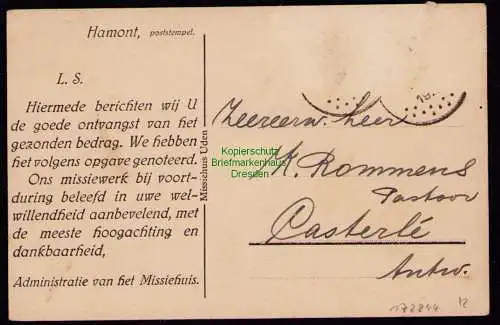 Hamont, poststempel.
L. S.
Hiermede berichten wij U
de goede ontvangst van het
gezonden bedrag. We hebben
het volgens opgave genoteerd.
Ons missiewerk bij voort-
during beleefd in uwe wel-
willendheid aanbevelend, met
de meeste hoogachting en
dankbaarheid,
Administratie van het Missiehuis.
Missiehuis Uden
Zeereerw. Heer
K. Rommens
Pastoor
Casterlé
Antw.
Kopierschutz
Briefmarkenhaus
Dresden
172844
12